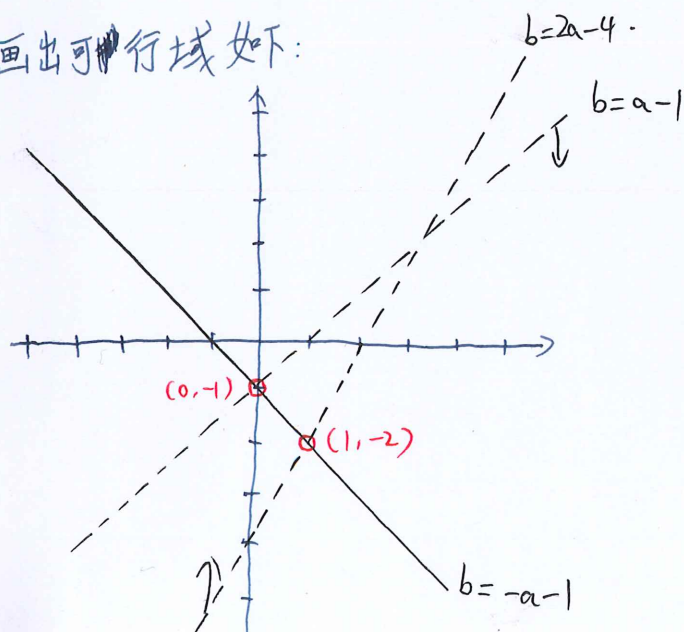 画出可行域如下:
b=2a-4.
b=a-1
(0,-1)
(1,-2)
b=-a-1